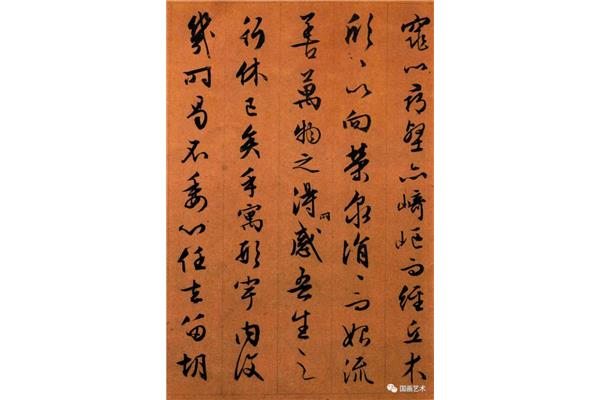 窕以尋壑亦崎嶇而經丘木
欣々以向榮泉涓々而始流
善萬物之得時感吾生之
行休已矣乎寓形宇內復
幾時曷不委心任去留胡
国画艺术